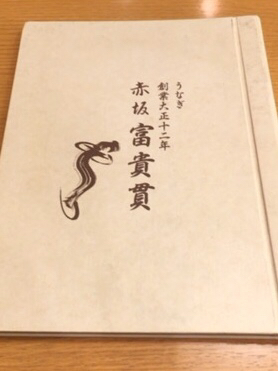 うなぎ
創業大正十二年
赤坂 富貴貫